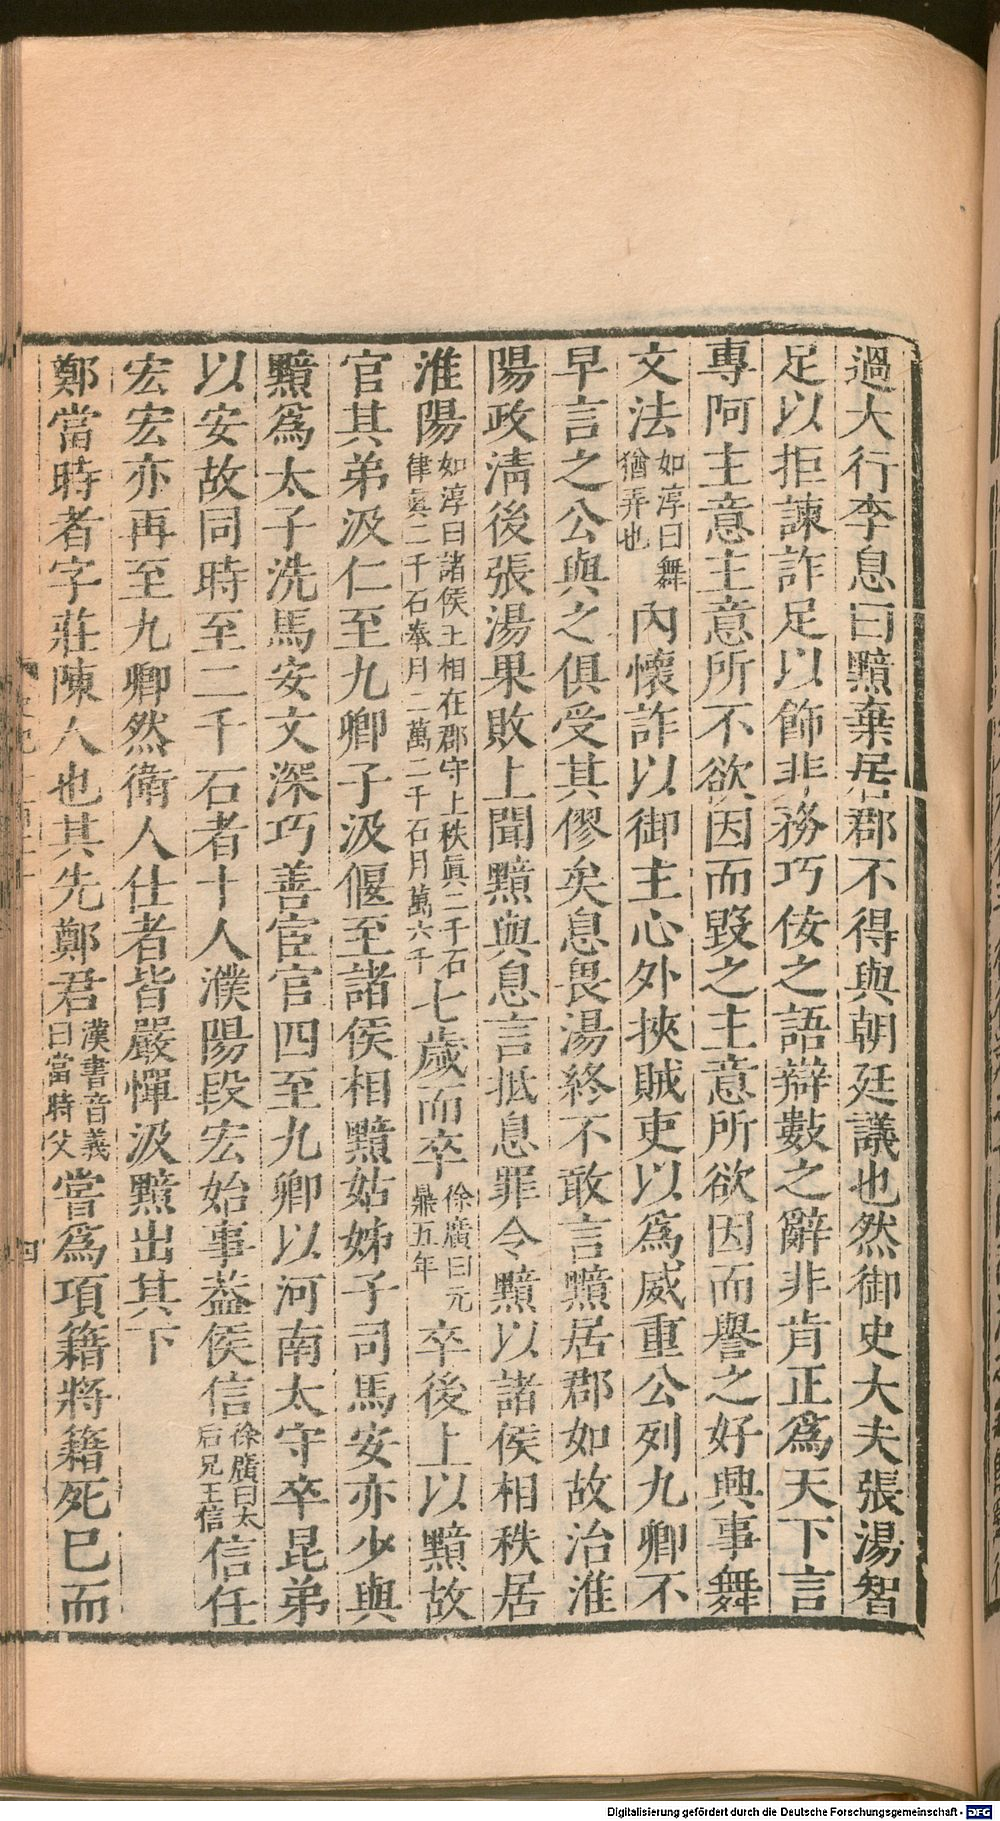 過大行李息曰黯棄居郡不得與朝廷議也然御史大夫張湯智
足以拒諫詐足以飾非務巧佞之語辯數之辭非肯正爲天下言
專阿主意主意所不欲因而毀之主意所欲因而譽之好興事舞
文法如淳曰舞猶弄也內懷詐以御主心外挾賊吏以爲威重公列九卿不
早言之公與之俱受其僇矣息畏湯終不敢言黯居郡如故治淮
陽政淸後張湯果敗上聞黯與息言抵息罪令黯以諸侯相秩居
淮陽如淳曰諸侯王相在郡守上秩眞二千石律眞二千石奉月二萬二千石月萬六千七歲而卒徐廣曰元鼎五年卒後上以黯故
官其弟汲仁至九卿子汲偃至諸侯相黯姑姊子司馬安亦少與
黯爲太子洗馬安文深巧善宦官四至九卿以河南太守卒昆弟
以安故同時至二千石者十人濮陽段宏始事葢侯信徐廣曰太后兄王信信任
宏宏亦再至九卿然衛人仕者皆嚴憚汲黯出其下
鄭當時者字莊陳人也其先鄭君漢書音義曰當時父嘗爲項籍將籍死巳而
四
Digitalisierung gefördert durch die Deutsche Forschungsgemeinschaft - DFG